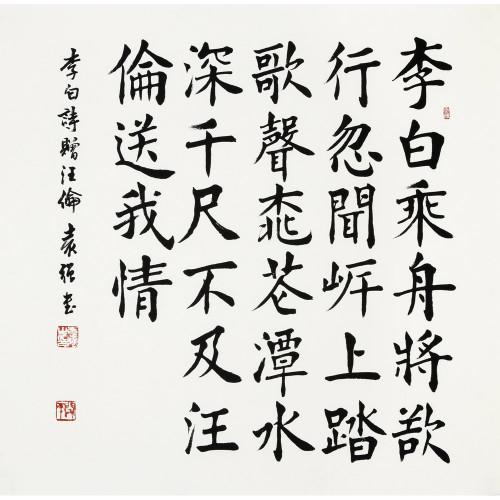 李白乘舟將欲
行忽聞岍上踏
歌聲桃花潭水
深千尺不及汪
倫送我情
李白詩贈汪倫 袁强書